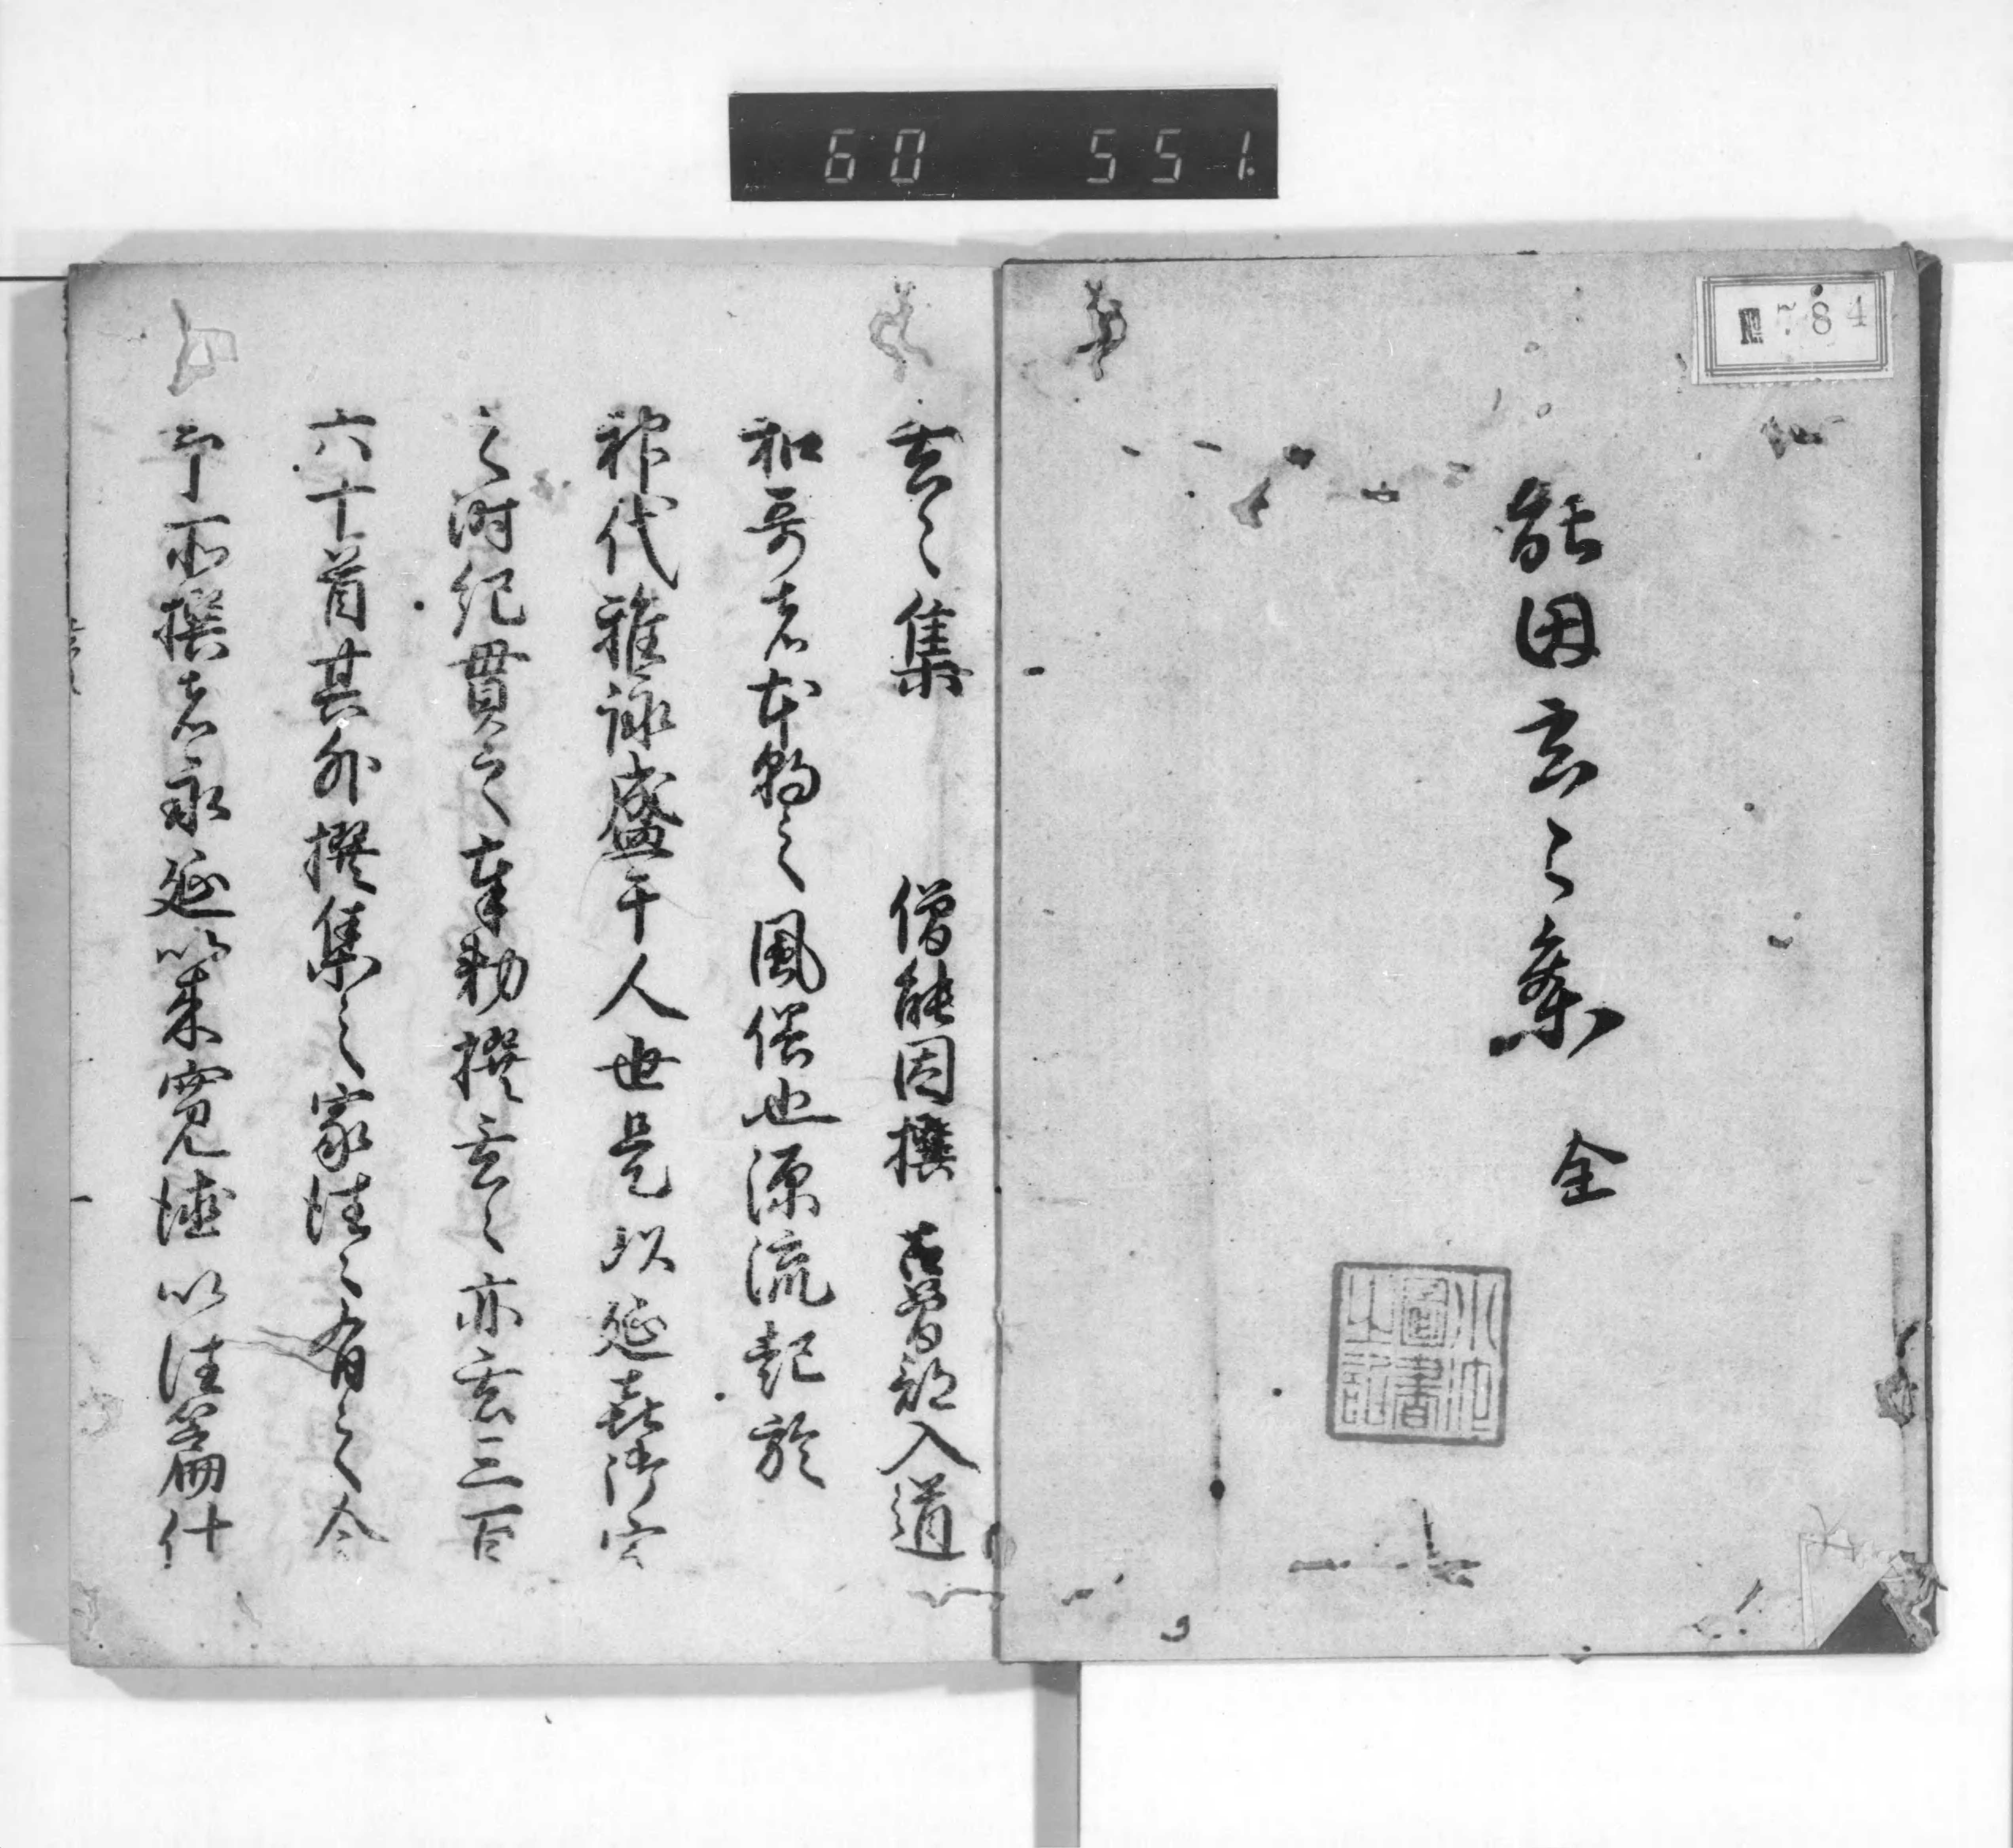 60 551
784
能因玄々集 全
小汀
圖書
之記
玄々集 僧能因撰 古曽部入道
和哥者本朝之風俗也源流起於
神代雅詠盛于人世是以延喜御宇
之時紀貫之奉勅撰玄々亦玄三百
六十首其外撰集之家往々有之今
予所撰者永延以来寛徳以往篇什